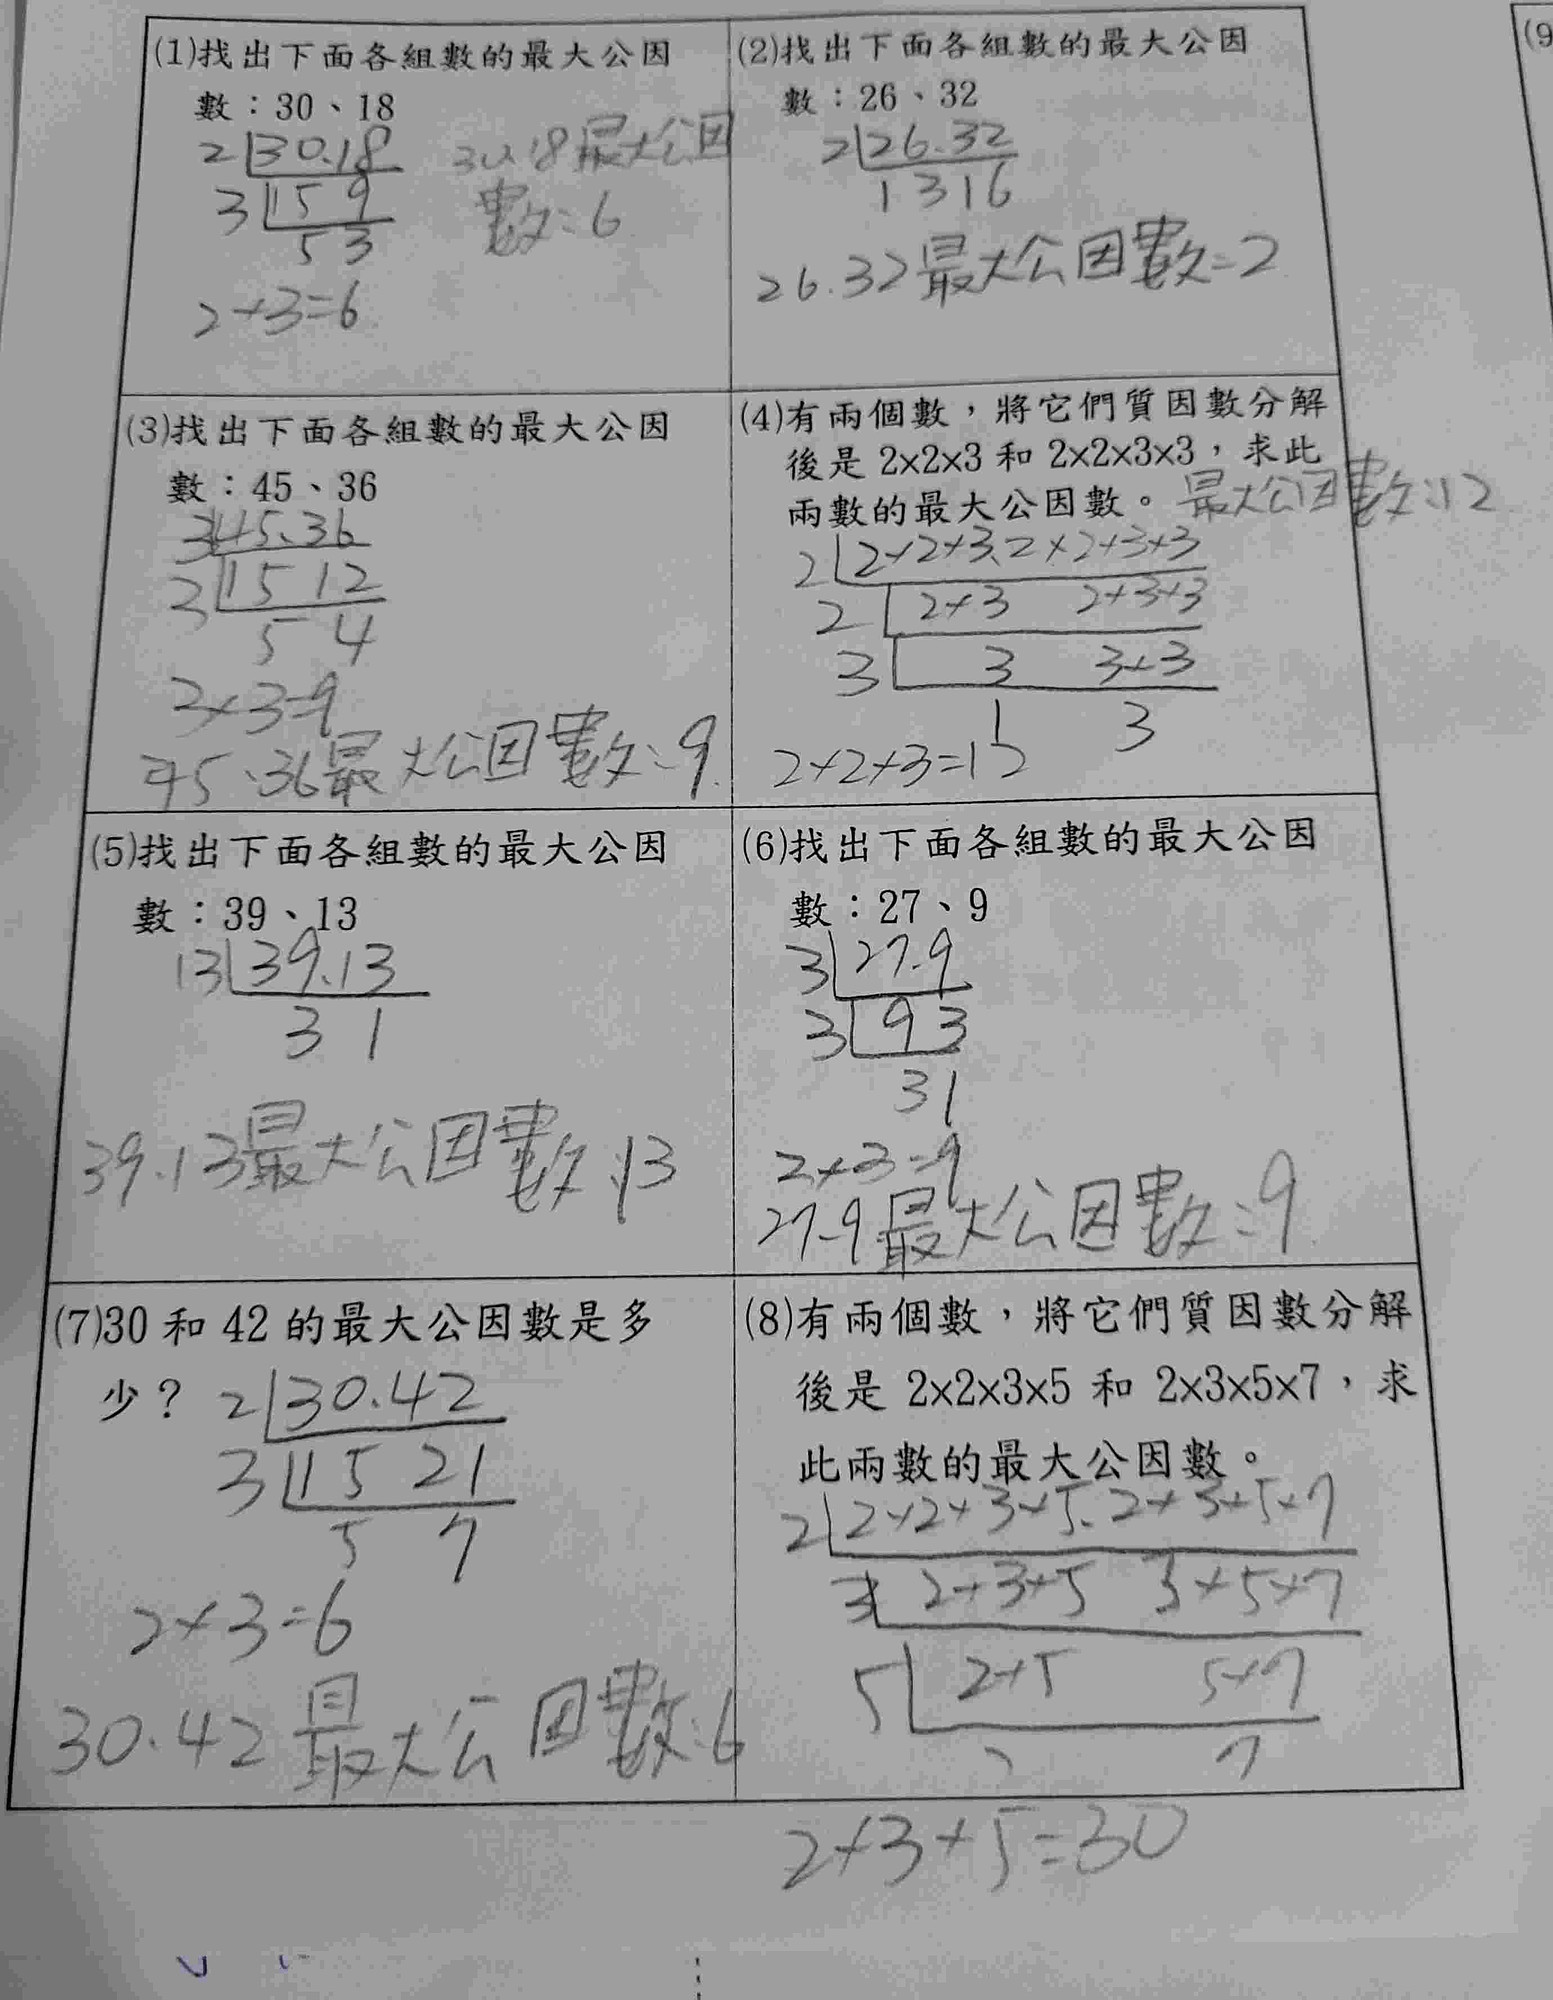 (1)找出下面各組數的最大公因
數：30、18
2 30.18
3 15 9
5 3
2×3=6
30.18最大公因
數:6
(2)找出下面各組數的最大公因
數：26、32
2 26.32
13 16
26.32最大公因數=2
(3)找出下面各組數的最大公因
數：45、36
3 45.36
3 15 12
5 4
3×3=9
45、36最大公因數:9
(4)有兩個數，將它們質因數分解
後是 2×2×3 和 2×2×3×3，求此
兩數的最大公因數。最大公因數:12
2 2×2×3、2×2×3×3
2 2×3 2×3×3
3 3 3×3
1 3
2×2×3=12
(5)找出下面各組數的最大公因
數：39、13
13 39、13
3 1
39.13最大公因數:13
(6)找出下面各組數的最大公因
數：27、9
3 27.9
3 9 3
3 1
3×3=9
27.9最大公因數:9
(7)30 和 42 的最大公因數是多
少？
2 30.42
3 15 21
5 7
2×3=6
30.42最大公因數:6
(8)有兩個數，將它們質因數分解
後是 2×2×3×5 和 2×3×5×7，求
此兩數的最大公因數。
2 2×2×3×5、2×3×5×7
3 2×3×5 3×5×7
5 2×5 5×7
2 7
2×3×5=30
(9